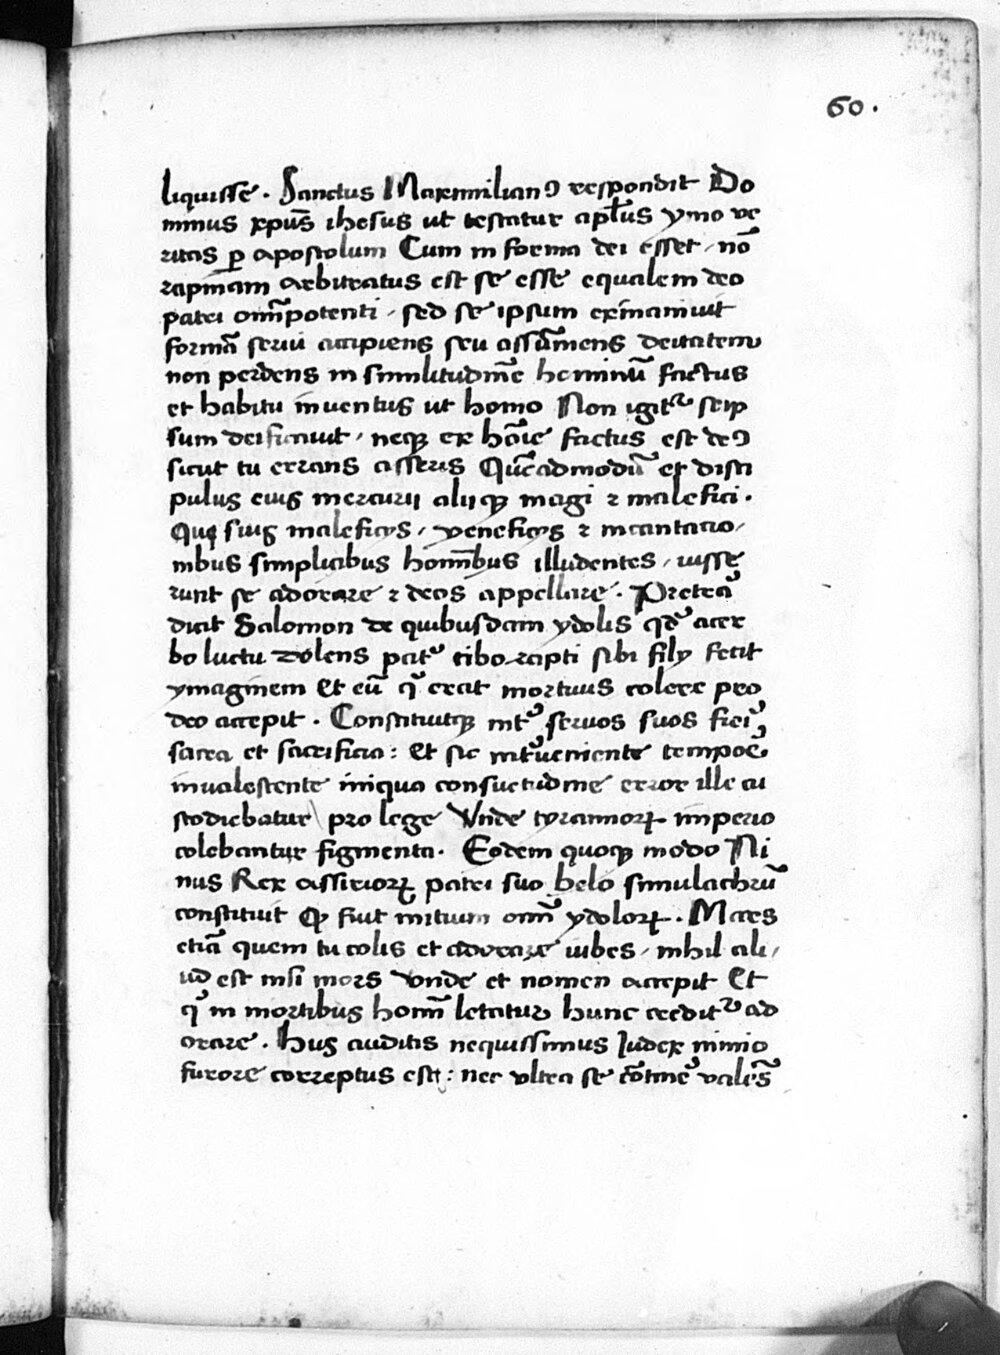 60.
liquisse. Sanctus Maximilianꝰ respondit Do
minus xpūs ihesus ut testatur apl̄us ymo ve
ritas ꝑ apostolum Cum in forma dei esset, nō
rapinam arbitratus est se esse equalem deo
patri omīpotenti, sed se ipsum exinaniuit
formā serui accipiens seu assūmens deitatem
non perdens in similitudīne hominū factus
et habitu inuentus ut homo Non igitᷣ seip
sum deificauit, neqꝫ ex hōie factus est deꝰ
sicut tu errans asseris Quēadmodū et disci
pulus eius mercurii aliiqꝫ magi ⁊ malefici.
Qui suis maleficijs, veneficijs ⁊ incantatio,
nibus simplicibus homībus illudentes, iusse
runt se adorare ⁊ deos appellare. Pretea᷑
dicit Salomon de quibusdam ydolis qd᷑ acer
bo luctu dolens patᷣ cito rapti sibi filij fecit
ymaginem Et eū qi᷑ erat mortuus colere pro
deo accepit. Constituitqꝫ intᷣ seruos suos fieri᷑
sacra et sacrificia: Et sic intᷣueniente tempoe᷑
inualescente iniqua consuetudine error ille cu
stodiebatur pro lege Vnde tyrannoꝝ imperio
colebantur figmenta. Eodem quoqꝫ modo Ni
nus Rex assirioꝝ patri suo belo simulachrū
constituit Qꝫ fuit initium omī ydoloꝝ. Mars
etiā quem tu colis et adorare iubes, nihil ali,
ud est nisi mors Vnde et nomen accepit Et
qi᷑ in mortibus homī letatur hunc creditᷣ ad
orare. Hijs auditis nequissimus Iudex nimio
furore correptus est: nec vltra se cōtine᷑ valēs